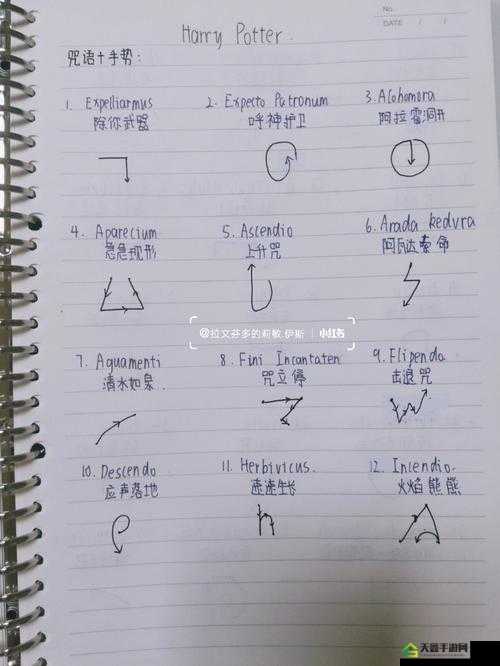 No.
DATE / /
Harry Potter
咒语+手势:
1. Expelliarmus
除你武器
2. Expecto Patronum
呼神护卫
3. Alohomora
阿拉霍洞开
4. Aparecium
急急现形
5. Ascendio
上升咒
6. Avada kedvra
阿瓦达索命
@拉文芬多的莉敏.伊斯 小红书
7. Aguamenti
清水如泉
8. Fini Incantaten
咒立停
9. Flipendo
击退咒
10. Descendo
应声落地
11. Herbivicus.
速速生长
12. Incendio.
火焰熊熊
天鑫手游网